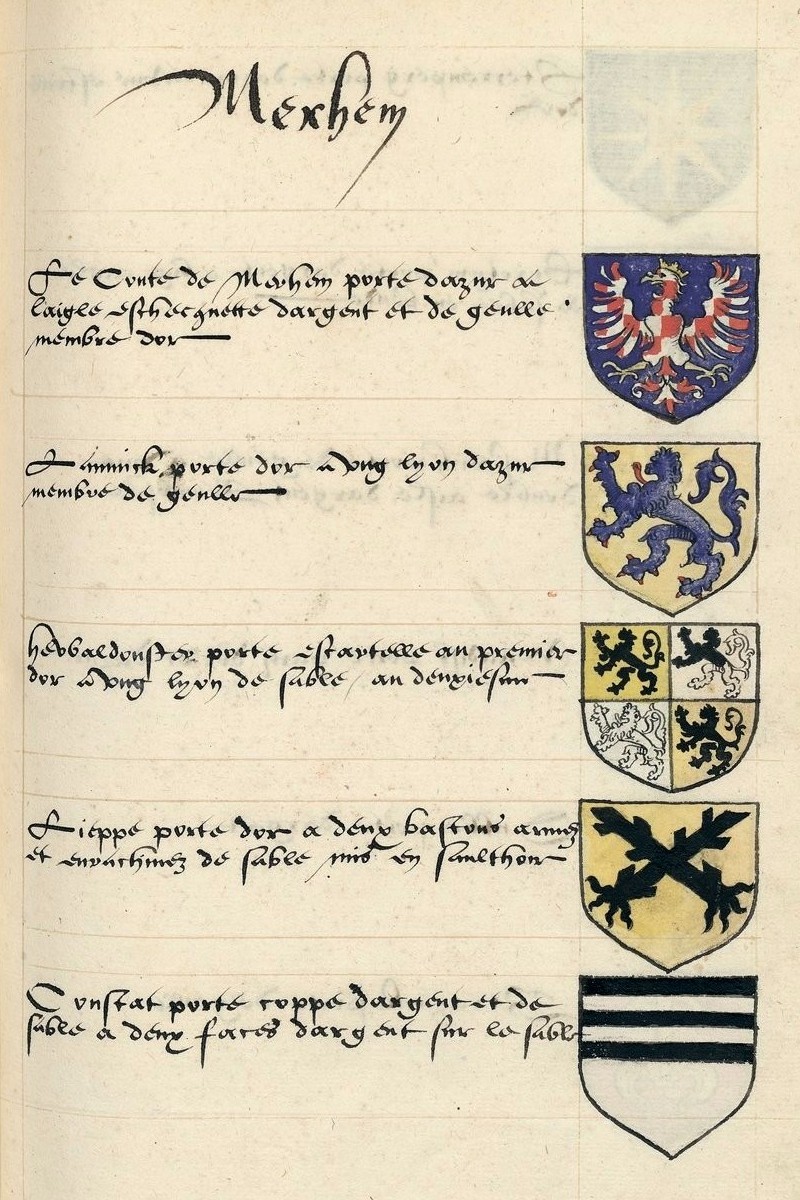 Merhem
Le Conte de Merhem porte dazur a
laigle eschecquette dargent et de geulle
membre dor
porte dor a ung lyon dazur
membre de geulle
porte escartelle au premier
dor a ung lyon de sable / au deuxiesme
Lieppe porte dor a deux bastons armez
et enrachinez de sable mis en saulthoir
Constat porte coppe dargent et de
sable a deux faces dargent sur le sable